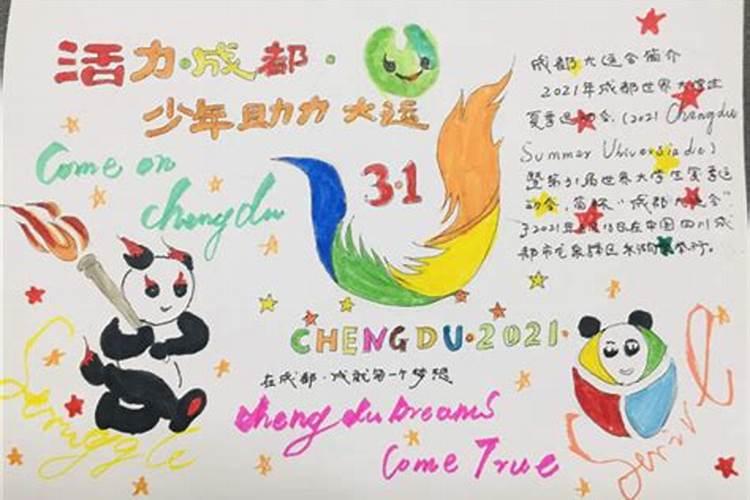 活力·成都·
少年助力大运
Come on
chengdu
3·1
成都大运会简介
2021年成都世界大学生
夏季运动会.(2021 Chengdu
Summer Universiade)
暨第31届世界大学生夏季运
动会，简称"成都大运会"
于2021年8月18日在中国四川成
都市龙泉驿区东
CHENGDU·2021·
在成都·成就每一个梦想
chengdu Dreams
Come True
Struggle